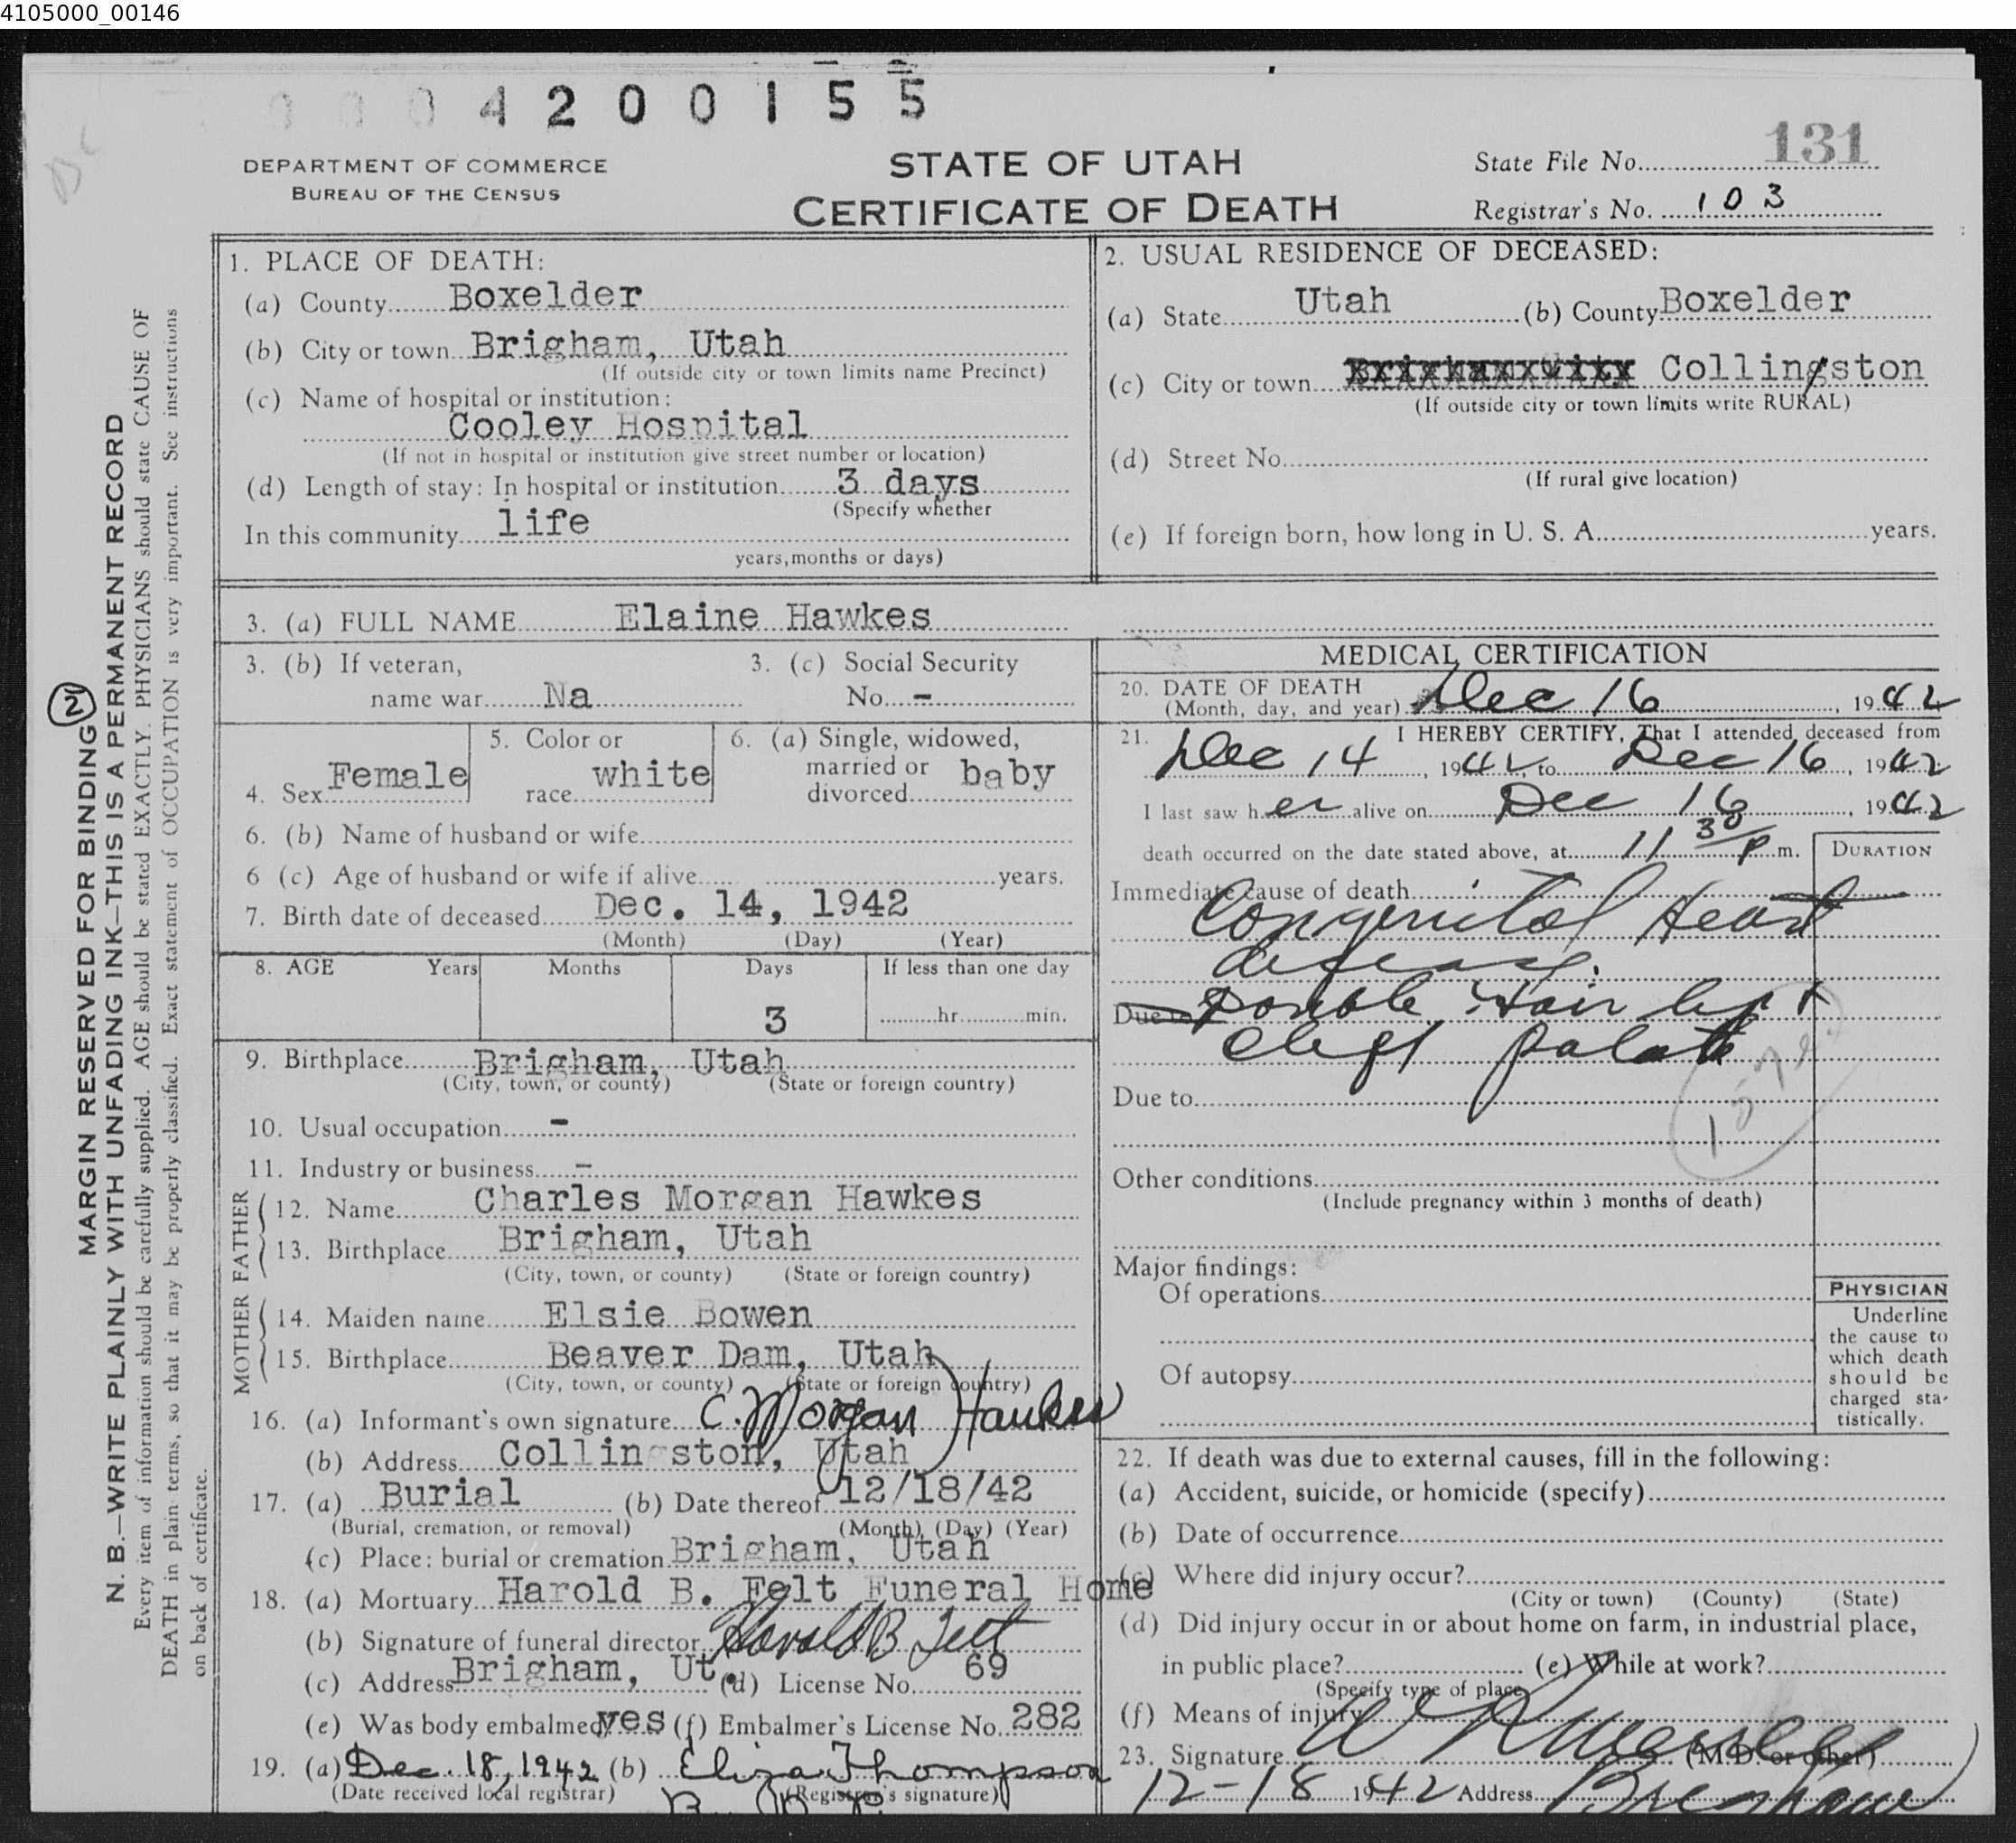 4105000_00146
4200155
DEPARTMENT OF COMMERCE
BUREAU OF THE CENSUS
STATE OF UTAH
CERTIFICATE OF DEATH
State File No. 131
Registrar's No. 103
MARGIN RESERVED FOR BINDING
N. B.—WRITE PLAINLY WITH UNFADING INK—THIS IS A PERMANENT RECORD
Every item of information should be carefully supplied. AGE should be stated EXACTLY. PHYSICIANS should state CAUSE OF
DEATH in plain terms, so that it may be properly classified. Exact statement of OCCUPATION is very important. See instructions
on back of certificate.
2
1. PLACE OF DEATH:
(a) County Boxelder
(b) City or town Brigham, Utah
(If outside city or town limits name Precinct)
(c) Name of hospital or institution:
Cooley Hospital
(If not in hospital or institution give street number or location)
(d) Length of stay: In hospital or institution 3 days
(Specify whether
In this community life
years, months or days)
2. USUAL RESIDENCE OF DECEASED:
(a) State Utah (b) County Boxelder
(c) City or town Collingston
(If outside city or town limits write RURAL)
(d) Street No.
(If rural give location)
(e) If foreign born, how long in U. S. A. years.
3. (a) FULL NAME Elaine Hawkes
3. (b) If veteran,
name war Na
3. (c) Social Security
No. -
4. Sex Female
5. Color or
race white
6. (a) Single, widowed,
married or
divorced baby
6. (b) Name of husband or wife
6 (c) Age of husband or wife if alive years.
7. Birth date of deceased Dec. 14, 1942
(Month) (Day) (Year)
8. AGE Years Months Days If less than one day
3 hr. min.
9. Birthplace Brigham, Utah
(City, town, or county) (State or foreign country)
10. Usual occupation -
11. Industry or business -
FATHER
12. Name Charles Morgan Hawkes
13. Birthplace Brigham, Utah
(City, town, or county) (State or foreign country)
MOTHER
14. Maiden name Elsie Bowen
15. Birthplace Beaver Dam, Utah
(City, town, or county) (State or foreign country)
16. (a) Informant's own signature C. Morgan Hawkes
(b) Address Collingston, Utah
17. (a) Burial (b) Date thereof 12/18/42
(Burial, cremation, or removal) (Month) (Day) (Year)
(c) Place: burial or cremation Brigham, Utah
18. (a) Mortuary Harold B. Felt Funeral Home
(b) Signature of funeral director Harold B Felt
(c) Address Brigham, Ut. (d) License No. 69
(e) Was body embalmed yes (f) Embalmer's License No. 282
19. (a) Dec. 18, 1942 (b) Eliza Thompson
(Date received local registrar) (Registrar's signature)
MEDICAL CERTIFICATION
20. DATE OF DEATH
(Month, day, and year) Dec 16, 1942
21. I HEREBY CERTIFY, That I attended deceased from
Dec 14, 1942, to Dec 16, 1942
I last saw her alive on Dec 16, 1942
death occurred on the date stated above, at 11 30 P m.
DURATION
Immediate cause of death
Congenital Heart
disease.
Due to Double Hair lip +
cleft palate
Due to
Other conditions
(Include pregnancy within 3 months of death)
Major findings:
Of operations
Of autopsy
PHYSICIAN
Underline
the cause to
which death
should be
charged sta-
tistically.
22. If death was due to external causes, fill in the following:
(a) Accident, suicide, or homicide (specify)
(b) Date of occurrence
(c) Where did injury occur?
(City or town) (County) (State)
(d) Did injury occur in or about home on farm, in industrial place,
in public place? (e) While at work?
(Specify type of place)
(f) Means of injury
23. Signature (M.D. or other)
12-18 1942 Address Brigham